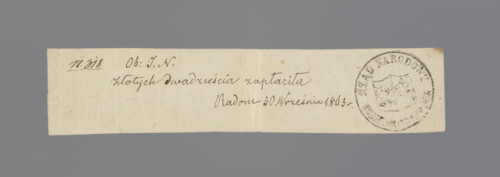 N 318 Ob: J. N.
Złotych dwadzieścia zapłaciła
Radom 30 Września 1863 r.
RZĄD NARODOWY